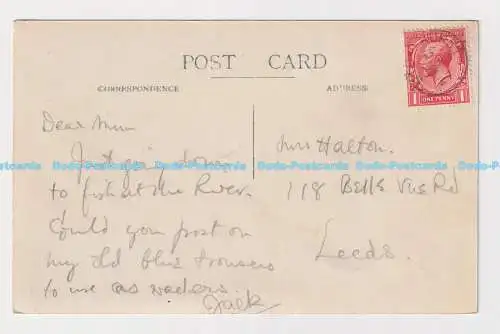 POST CARD
CORRESPONDENCE
ADDRESS
ONE PENNY
1 1
Dear Mum
Just going down
to fish at the River.
Could you post on
my old blue trousers
to use as waders.
Jack
Mrs Halton.
118 Belle Vue Rd
Leeds.
Dodo-Postcards Dodo-Postcards Dodo-Postcards Dodo-Postcards